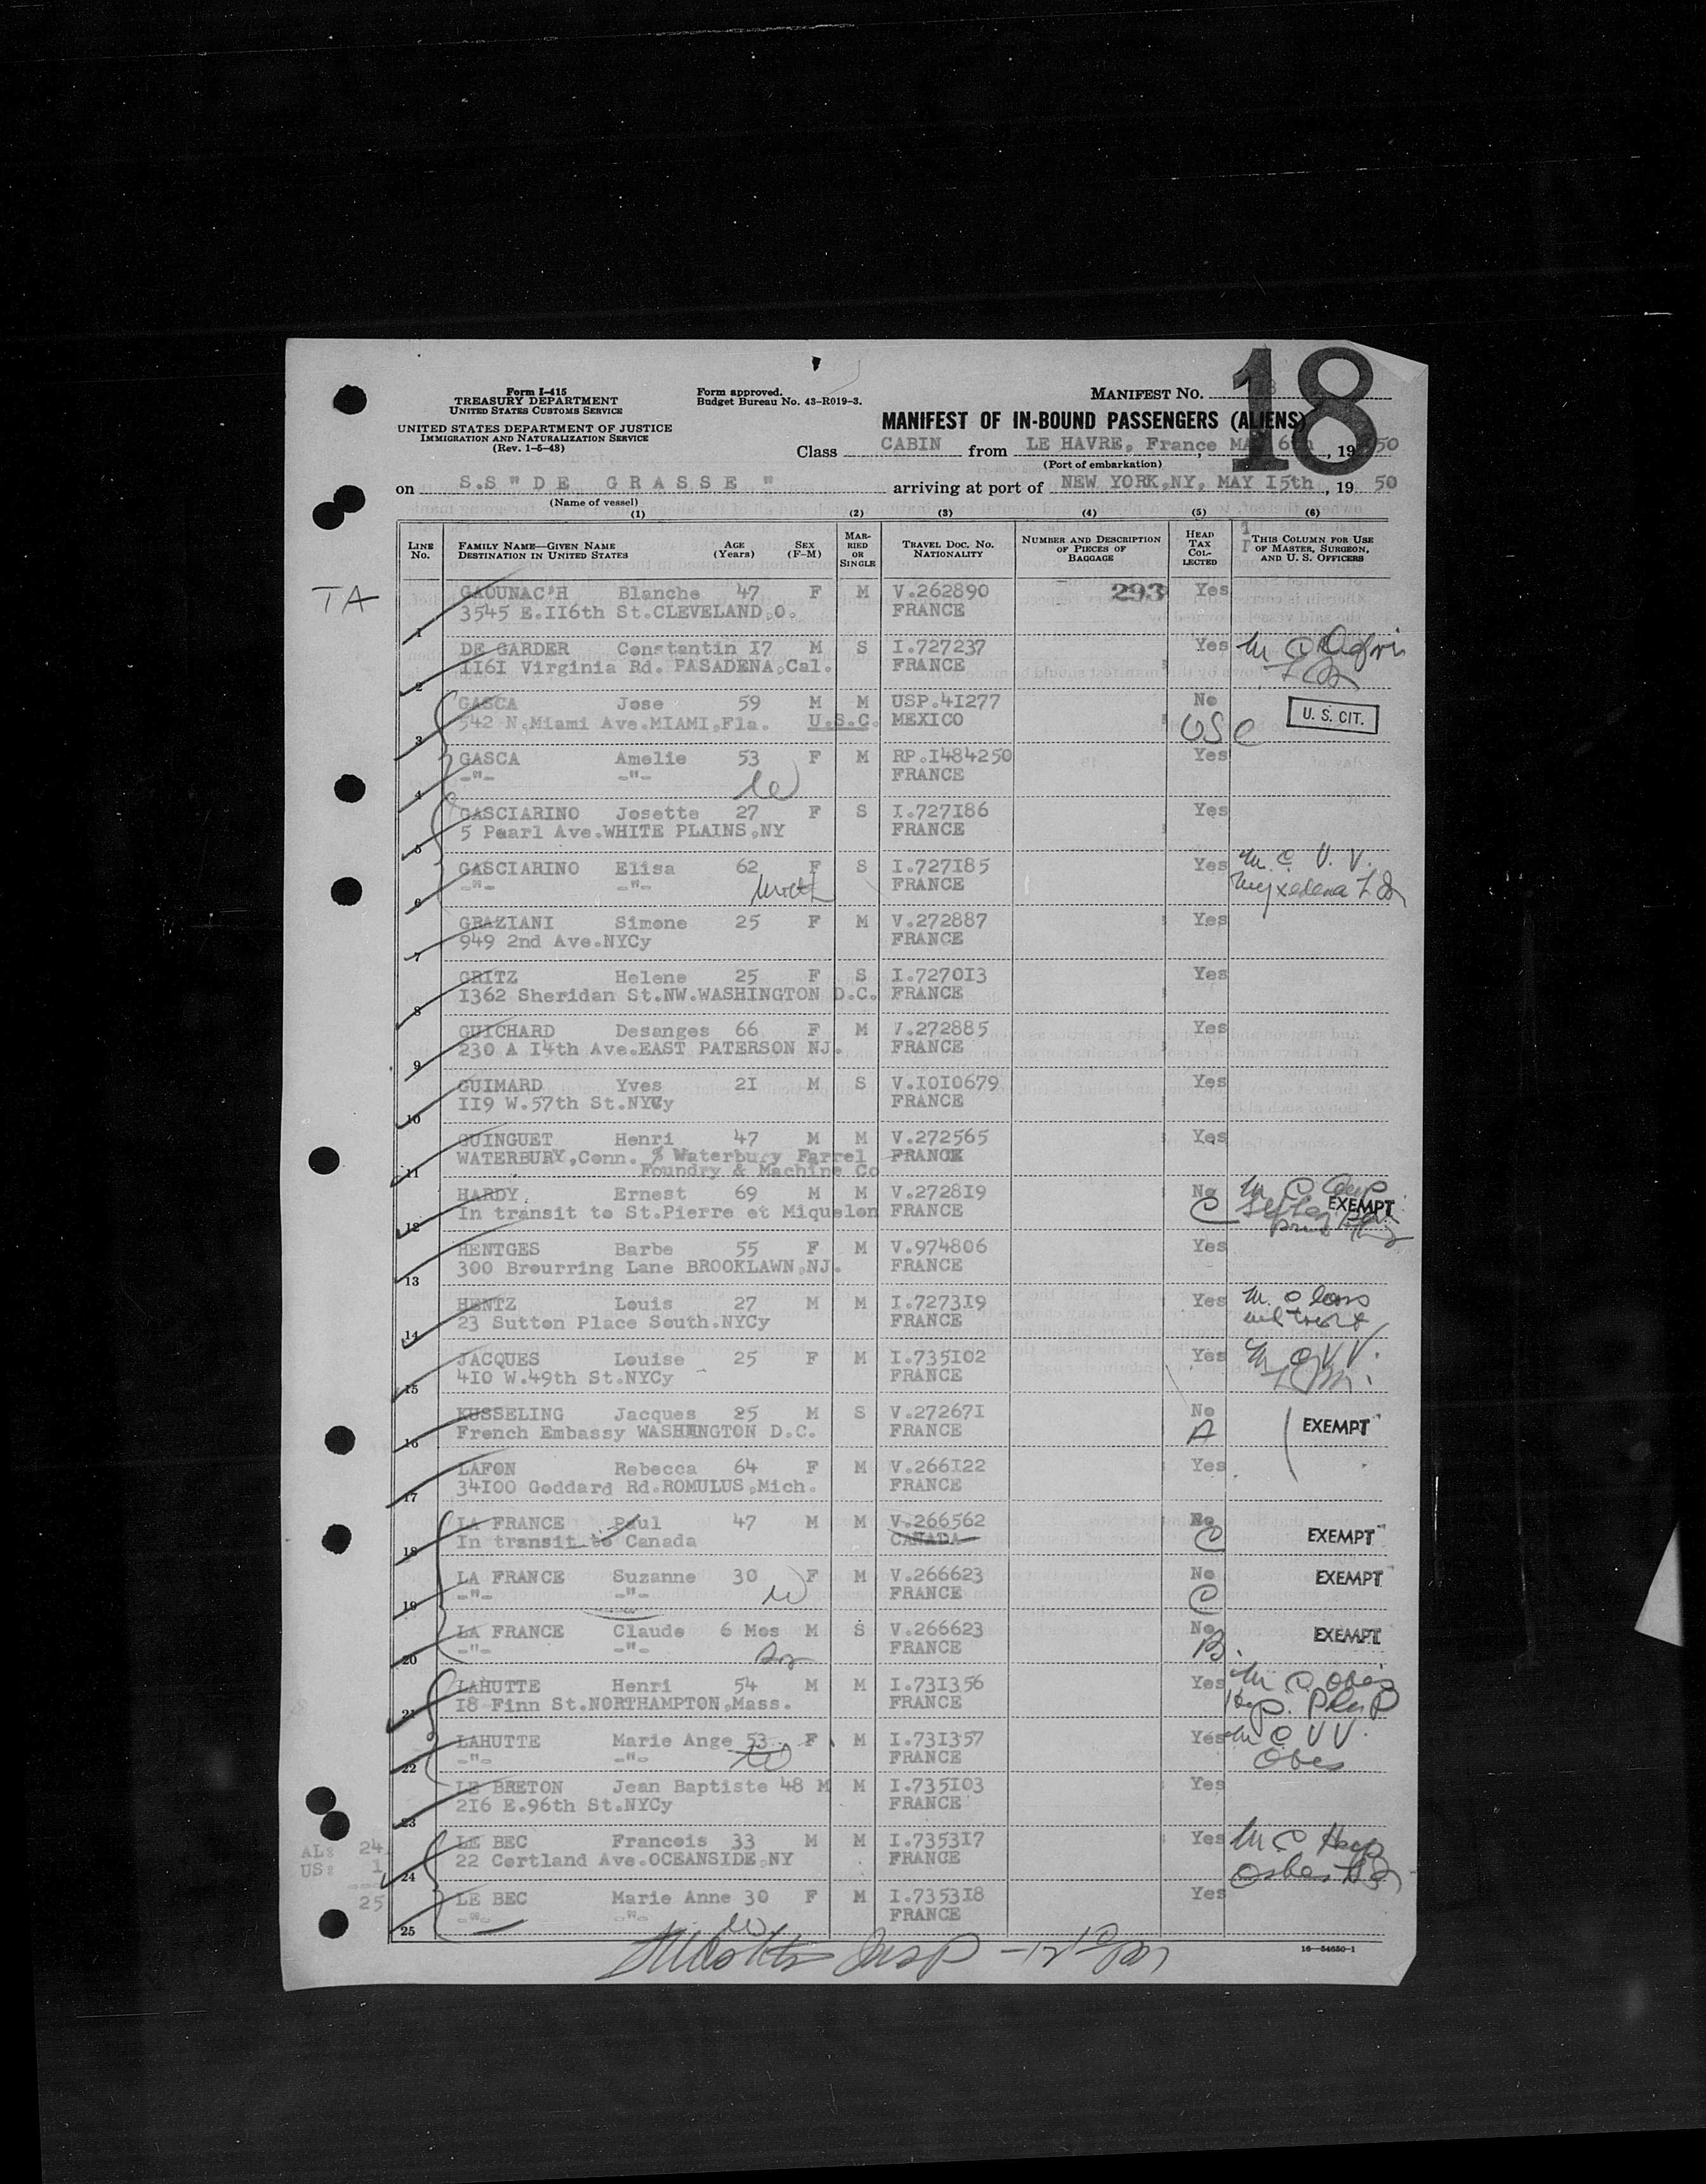 Form I-415
TREASURY DEPARTMENT
UNITED STATES CUSTOMS SERVICE
UNITED STATES DEPARTMENT OF JUSTICE
IMMIGRATION AND NATURALIZATION SERVICE
(Rev. 1-5-48)
Form approved.
Budget Bureau No. 43-R019-3.
MANIFEST No. 18
MANIFEST OF IN-BOUND PASSENGERS (ALIENS)
Class CABIN from LE HAVRE, France MAY 6th, 1950
(Port of embarkation)
on S.S "DE GRASSE" arriving at port of NEW YORK,NY, MAY I5th, 19 50
(Name of vessel)
(1) (2) (3) (4) (5) (6)
LINE No. FAMILY NAME—GIVEN NAME DESTINATION IN UNITED STATES AGE (Years) SEX (F-M) MARRIED OR SINGLE TRAVEL DOC. NO. NATIONALITY NUMBER AND DESCRIPTION OF PIECES OF BAGGAGE HEAD TAX COLLECTED THIS COLUMN FOR USE OF MASTER, SURGEON, AND U. S. OFFICERS
TA GAOUNAC'H Blanche 47 F M V.262890 293 Yes
1 3545 E.II6th St.CLEVELAND,O. FRANCE
DE GARDER Constantin I7 M S I.727237 Yes
2 II6I Virginia Rd. PASADENA,Cal. FRANCE
GASCA Jose 59 M M USP.4I277 No
3 542 N.Miami Ave.MIAMI,Fla. U.S.C. MEXICO USC U. S. CIT.
GASCA Amelie 53 F M RP.I484250 Yes
4 -"- -"- W FRANCE
GASCIARINO Josette 27 F S I.727I86 Yes
5 5 Pearl Ave.WHITE PLAINS,NY FRANCE
GASCIARINO Elisa 62 F S I.727I85 Yes M. C V. V.
6 -"- -"- FRANCE Myxedema
GRAZIANI Simone 25 F M V.272887 Yes
7 949 2nd Ave.NYCy FRANCE
GRITZ Helene 25 F S I.7270I3 Yes
8 I362 Sheridan St.NW.WASHINGTON D.C. FRANCE
GUICHARD Desanges 66 F M V.272885 Yes
9 230 A I4th Ave.EAST PATERSON NJ. FRANCE
GUIMARD Yves 2I M S V.I0I0679 Yes
10 II9 W.57th St.NYCy FRANCE
GUINGUET Henri 47 M M V.272565 Yes
11 WATERBURY,Conn. % Waterbury Farrel FRANCE
Foundry & Machine Co
HARDY Ernest 69 M M V.2728I9 No
12 In transit to St.Pierre et Miquelon FRANCE C EXEMPT
HENTGES Barbe 55 F M V.974806 Yes
13 300 Brourring Lane BROOKLAWN,NJ. FRANCE
HENTZ Louis 27 M M I.7273I9 Yes
14 23 Sutton Place South.NYCy FRANCE
JACQUES Louise 25 F M I.735I02 Yes
15 4I0 W.49th St.NYCy FRANCE
KUSSELING Jacques 25 M S V.27267I No
16 French Embassy WASHINGTON D.C. FRANCE A EXEMPT
LAFON Rebecca 64 F M V.266I22 Yes
17 34I00 Goddard Rd.ROMULUS,Mich. FRANCE
LA FRANCE Paul 47 M M V.266562 No
18 In transit to Canada CANADA C EXEMPT
LA FRANCE Suzanne 30 F M V.266623 No
19 -"- -"- W FRANCE C EXEMPT
LA FRANCE Claude 6 Mos M S V.266623 No
20 -"- -"- FRANCE B. EXEMPT
LAHUTTE Henri 54 M M I.73I356 Yes
21 I8 Finn St.NORTHAMPTON,Mass. FRANCE
LAHUTTE Marie Ange 53 F M I.73I357 Yes M C V V.
22 -"- -"- W FRANCE Obes
LE BRETON Jean Baptiste 48 M M I.735I03 Yes
23 2I6 E.96th St.NYCy FRANCE
AL: 24 LE BEC Francois 33 M M I.7353I7 Yes
US: 1 24 22 Cortland Ave.OCEANSIDE,NY FRANCE
25 LE BEC Marie Anne 30 F M I.7353I8 Yes
25 -"- -"- W FRANCE
16—54650-1